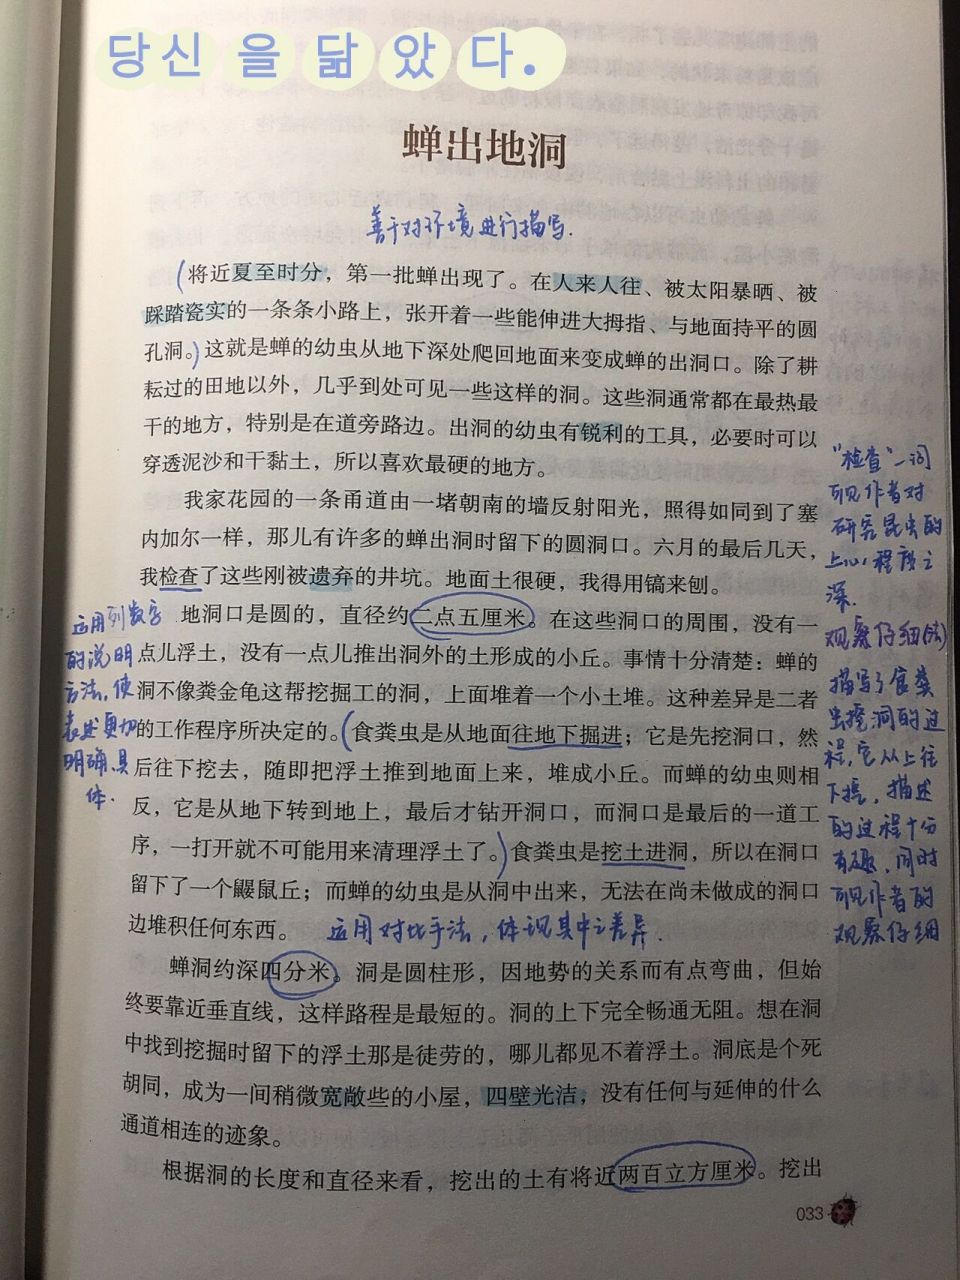 당신 을 닮 았 다.
蝉出地洞
善于对环境进行描写.
将近夏至时分，第一批蝉出现了。在人来人往、被太阳暴晒、被
踩踏瓷实的一条条小路上，张开着一些能伸进大拇指、与地面持平的圆
孔洞。这就是蝉的幼虫从地下深处爬回地面来变成蝉的出洞口。除了耕
耘过的田地以外，几乎到处可见一些这样的洞。这些洞通常都在最热最
干的地方，特别是在道旁路边。出洞的幼虫有锐利的工具，必要时可以
穿透泥沙和干黏土，所以喜欢最硬的地方。
我家花园的一条甬道由一堵朝南的墙反射阳光，照得如同到了塞
内加尔一样，那儿有许多的蝉出洞时留下的圆洞口。六月的最后几天，
我检查了这些刚被遗弃的井坑。地面土很硬，我得用镐来刨。
地洞口是圆的，直径约二点五厘米。在这些洞口的周围，没有一
点儿浮土，没有一点儿推出洞外的土形成的小丘。事情十分清楚：蝉的
洞不像粪金龟这帮挖掘工的洞，上面堆着一个小土堆。这种差异是二者
的工作程序所决定的。(食粪虫是从地面往地下掘进；它是先挖洞口，然
后往下挖去，随即把浮土推到地面上来，堆成小丘。而蝉的幼虫则相
反，它是从地下转到地上，最后才钻开洞口，而洞口是最后的一道工
序，一打开就不可能用来清理浮土了。)食粪虫是挖土进洞，所以在洞口
留下了一个鼹鼠丘；而蝉的幼虫是从洞中出来，无法在尚未做成的洞口
边堆积任何东西。
运用对比手法，体现其中之差异.
蝉洞约深四分米。洞是圆柱形，因地势的关系而有点弯曲，但始
终要靠近垂直线，这样路程是最短的。洞的上下完全畅通无阻。想在洞
中找到挖掘时留下的浮土那是徒劳的，哪儿都见不着浮土。洞底是个死
胡同，成为一间稍微宽敞些的小屋，四壁光洁，没有任何与延伸的什么
通道相连的迹象。
根据洞的长度和直径来看，挖出的土有将近两百立方厘米。挖出
运用列数字
的说明
方法，使
表述更加
明确、具
体.
"检查"一词
可见作者对
研究昆虫的
上心程度之
深.
观察仔细
描写了食粪
虫挖洞的过
程，它从上往
下挖，描述
的过程十分
有趣，同时
可见作者的
观察仔细
033